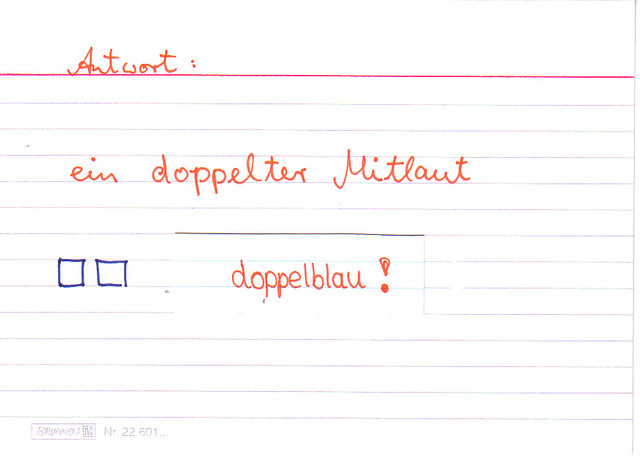 Antwort:
ein doppelter Mitlaut
doppelblau!
BRUNNEN Nr. 22 601..